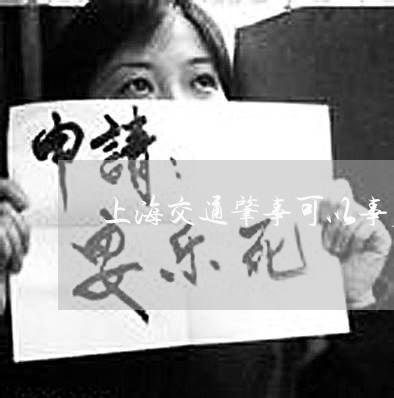 申請：
上海交通肇事可以事
安乐死